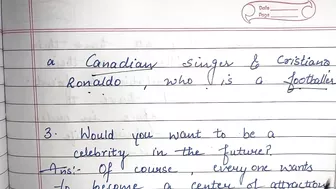 Date
Page
a Canadian singer & Cristiano
Ronaldo, who is a footballer
3. Would you want to be a
celebrity in the future?
Ans:- Of course, everyone wants
to become a center of attraction